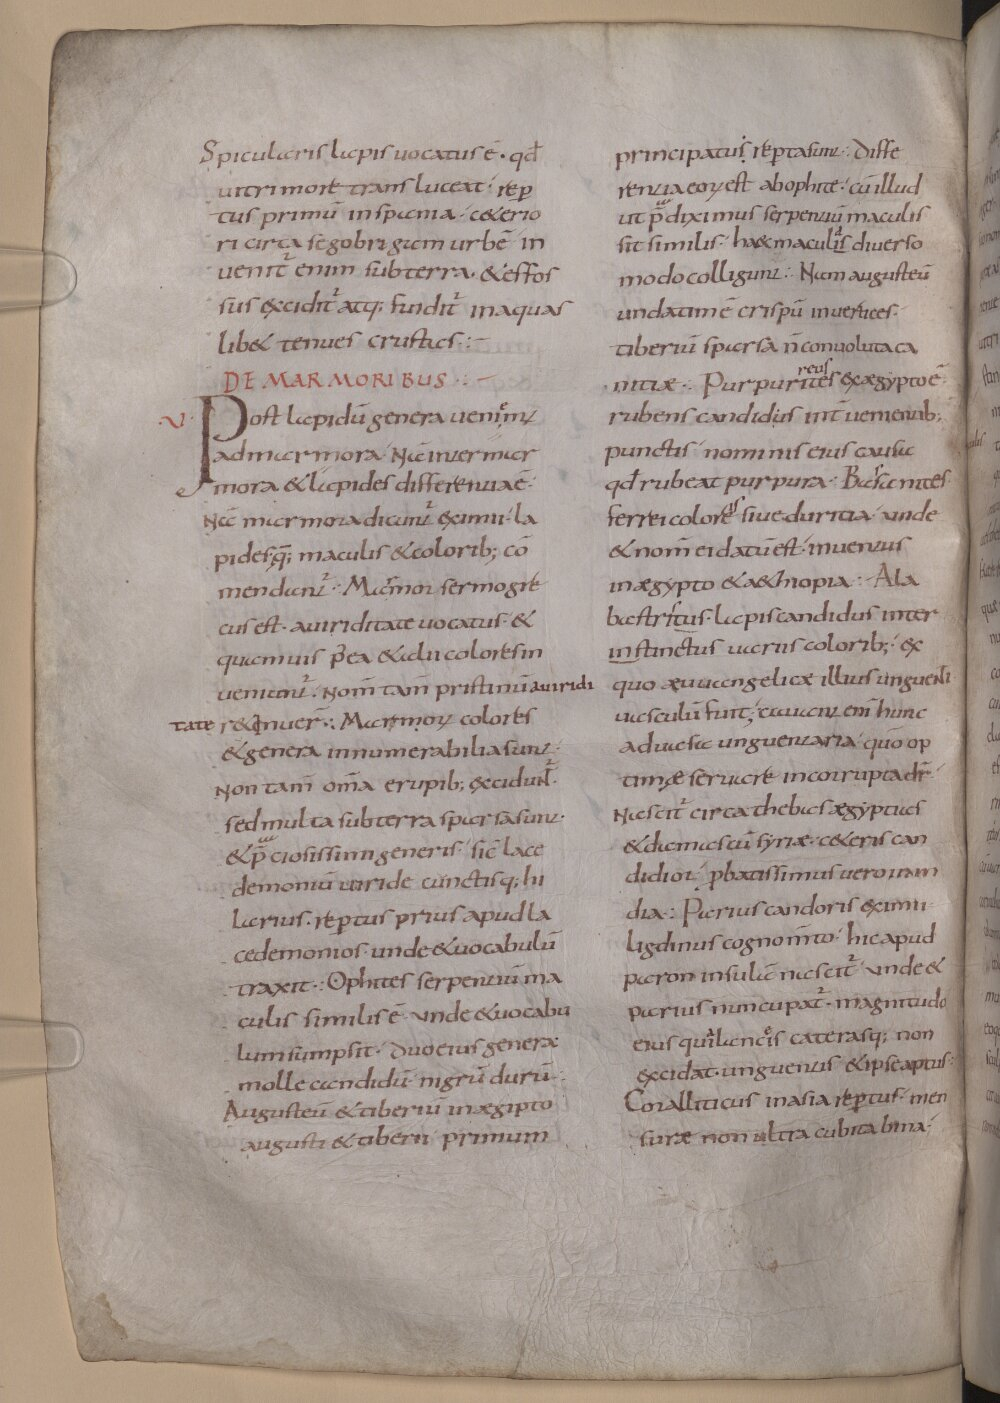 Specularis lapis uocatus ē· qđ
uitri more transluceat· rep̲
tus primū in spania· & ceterio
ri circa segobrigam urbē in
uenit᷒ enim sub terra· & effos
sus exciditʾ atq; funditʾ in aquas
lib& tenues crustas:·
DE MARMORIBUS:·
·V· Post lapidū genera uenimʾ
ad marmora· Nā inter mar
mora & lapides differentia ē·
Nā marmora dicuntʾ eximii la
pides q̄; maculis & colorib; cō
mendantʾ· Marmor sermo grę
cus est· a uiriditate uocatus· &
quamuis p̄ea & alii colores in
ueniuntʾ· nom̄ tam̄ pristinū a uiridi
tate r&inuer̄·: Marmorꝝ colores
& genera innumerabilia sunt·
Non tam̄ om̄a e rupib; excidunʾ
sed multa sub terra sparsa sunt·
& p̄ciosissimi generis· sic̄ lace
demoniū uiride cunctisq; hi
larius· rep̲tus prius apud la
cedemonios· unde & uocabulū
traxit·: Ophites serpentiū ma
culis similis ē· unde & uocabu
lum sumpsit· duo eius genera
molle candidū· nigrū durū·
Augusteū & tiberiū in ægipto
augusti & tiberii primum
principatus rep̲ta sunt·: Diffe
rentia eorꝝ est ab ophite· cū illud
ut p̄diximus serpentiū maculis
sit similis· haec maculis diuerso
modo colligunt·: Nam augusteū
undatim ē crispū in uertices·
tiberiū sparsa n̄ conuoluta ca
nitiæ·: Purpurites reus ex ægypto ē
rubens candidus int̄ uenientib;
punctis· nominis eius causa
qđ rubeat purpura· Basanites
ferrei coloris siue duritia· unde
& nom̄ ei datū est· inuentus
in ægypto & aethiopia·: Ala
bastritus· lapis candidus inter
instinctus uariis colorib;· ex
quo æuuangelicæ illius unguenti
uasculū fuit; cauant eni hunc
ad uasa unguentaria· quō op
timæ seruare incorrupta dr̄·
Nascitʾ circa thebas ægyptias
& damascū syriæ· ceteris can
didior· p̲batissimus uero in in
dia·: Parius candoris eximii
ligdinus cognom̄to· hic apud
paron insulā nascitʾ unde &
parius nuncupatʾ· magnitudo
eius qui lances caterasq; non
excidat· unguentis & ipse aptus:
Coralliticus in asia rep̲tus· men
suræ non ultra cubita bina·